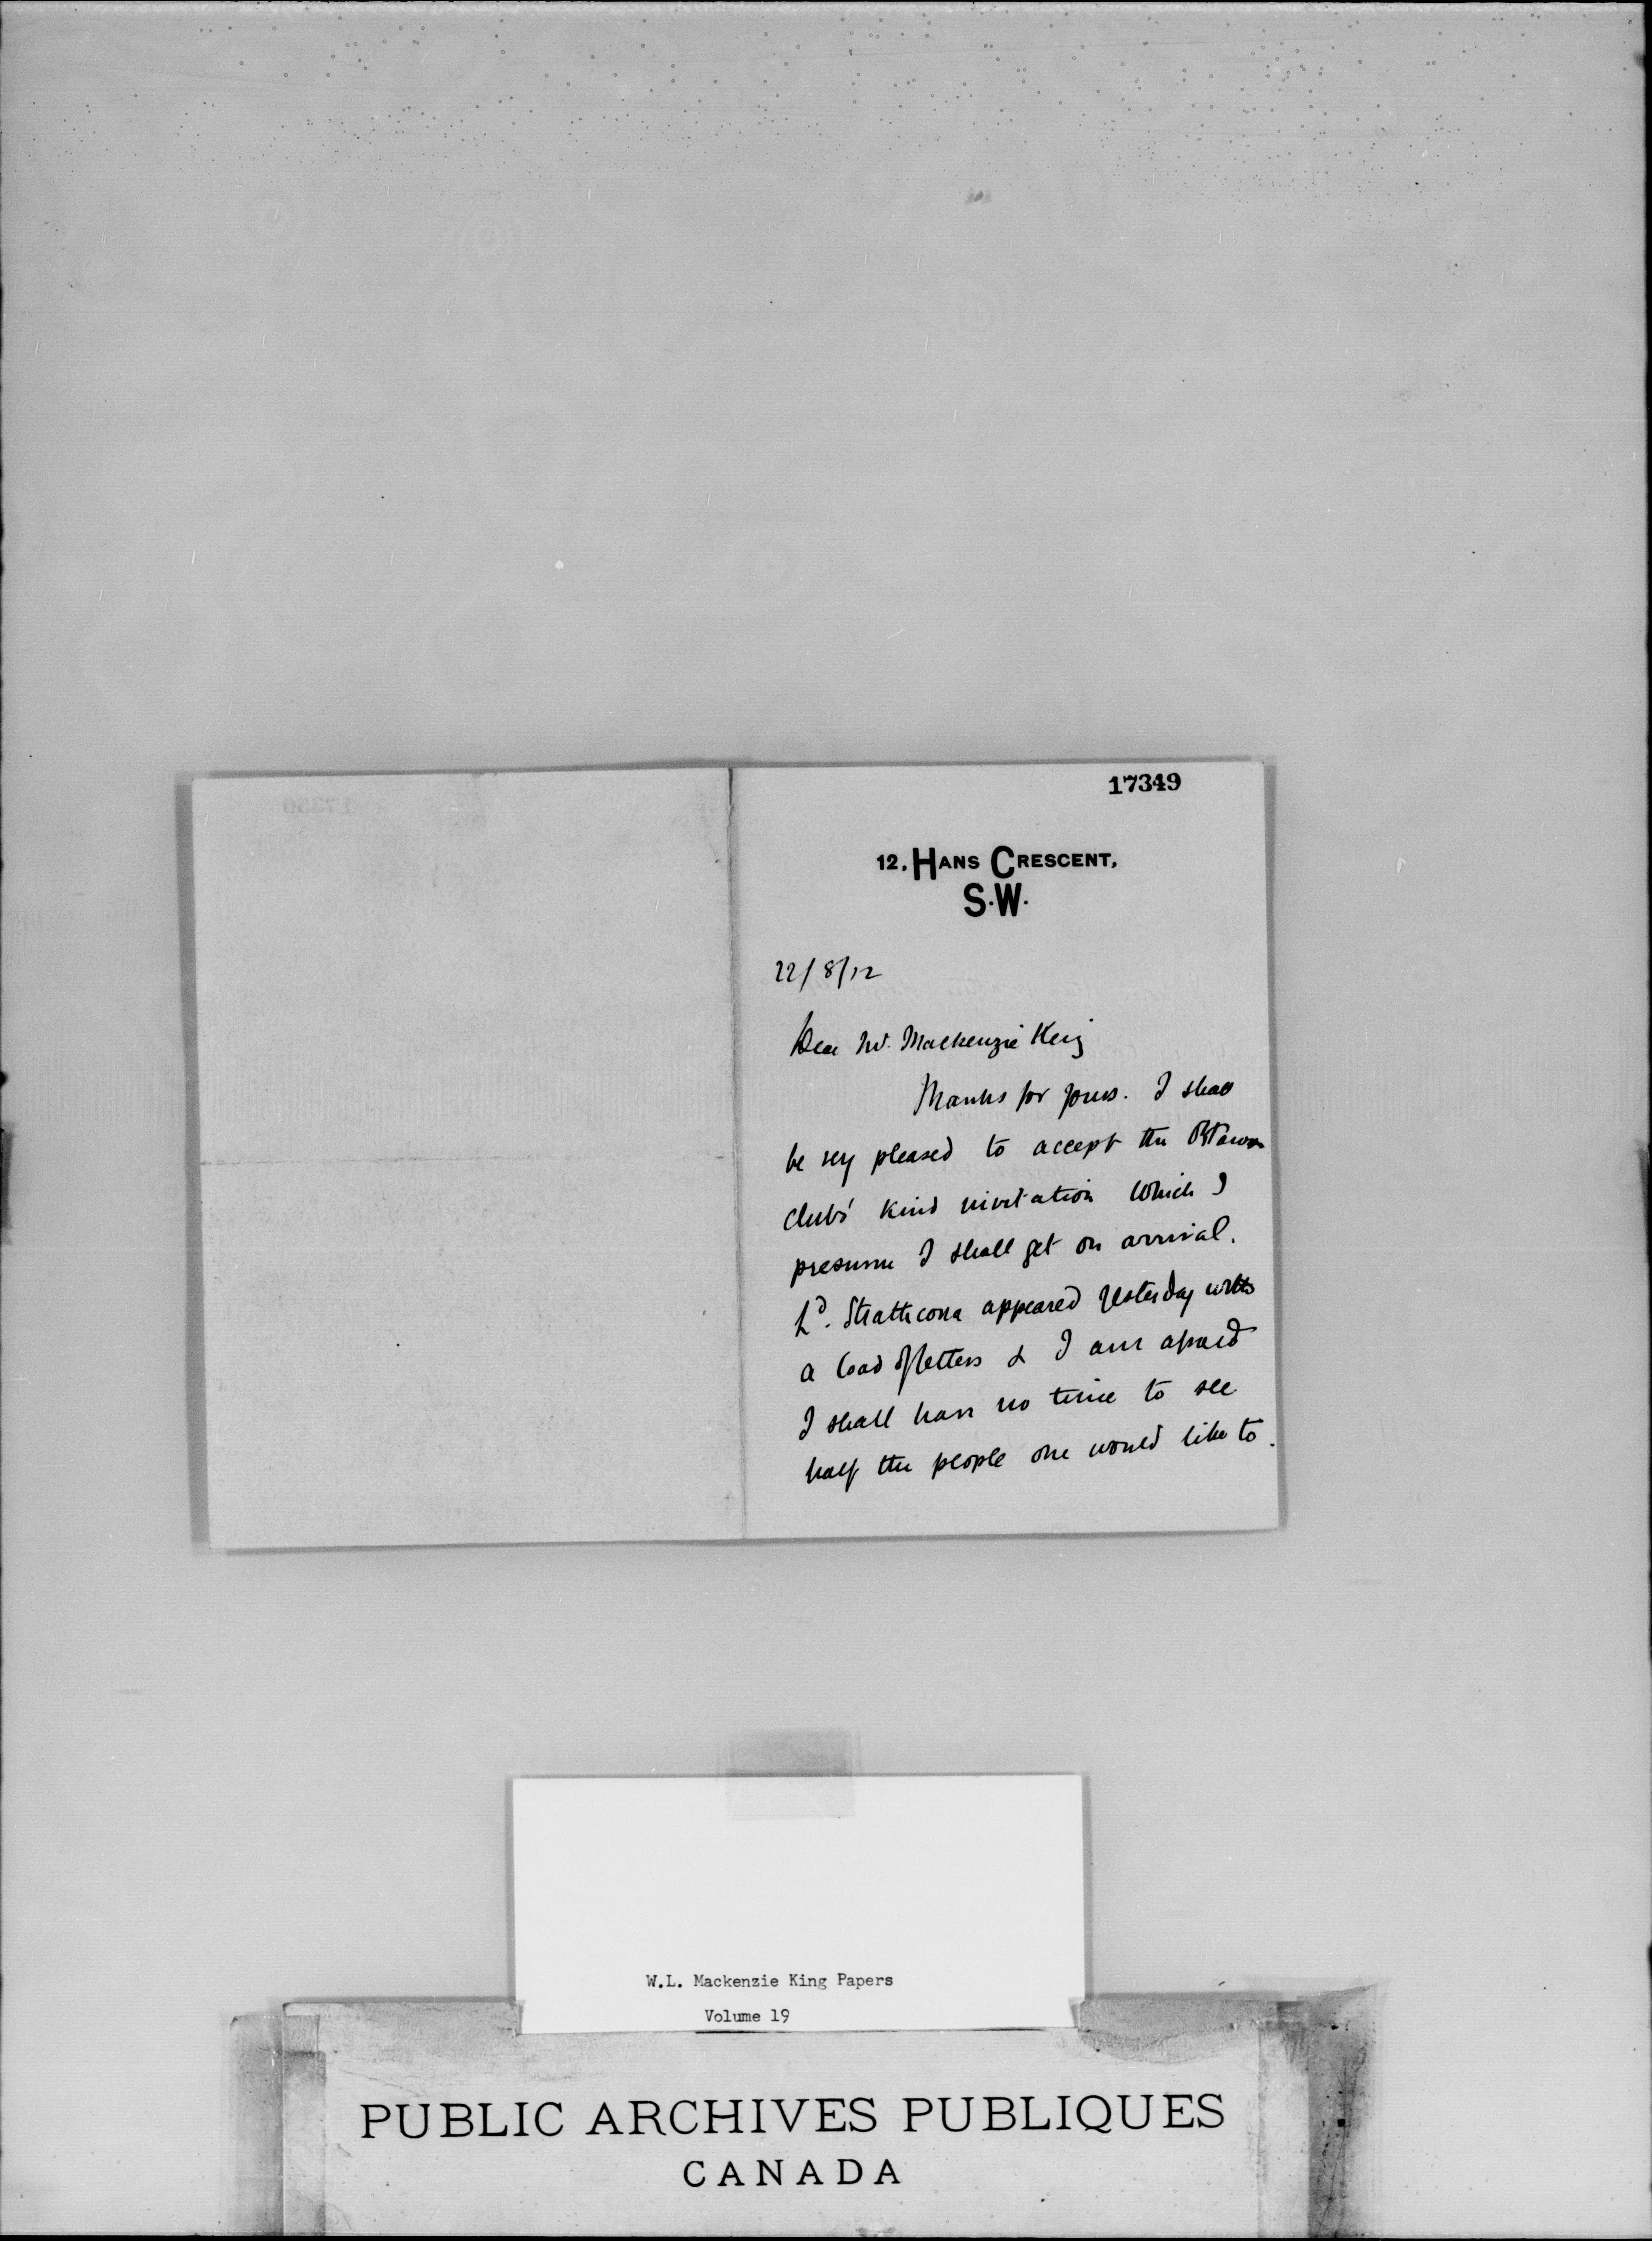 17349
12, HANS CRESCENT,
S.W.
22/8/12
Dear Mr. Mackenzie King
Thanks for yours. I shall
be very pleased to accept the Ottawa
Clubs' kind invitation which I
presume I shall get on arrival.
Ld. Strathcona appeared yesterday with
a load of letters & I am afraid
I shall have no time to see
half the people one would like to.
W.L. Mackenzie King Papers
Volume 19
PUBLIC ARCHIVES PUBLIQUES
CANADA